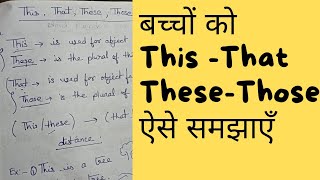 This, That, These, Those
This → is used for object
These → is the plural of th
That → is used for object fa
Those → is the plural of
(This/these) → (that
distance.
Ex - ① This is a tree
बच्चों को
This -That
These-Those
ऐसे समझाएँ